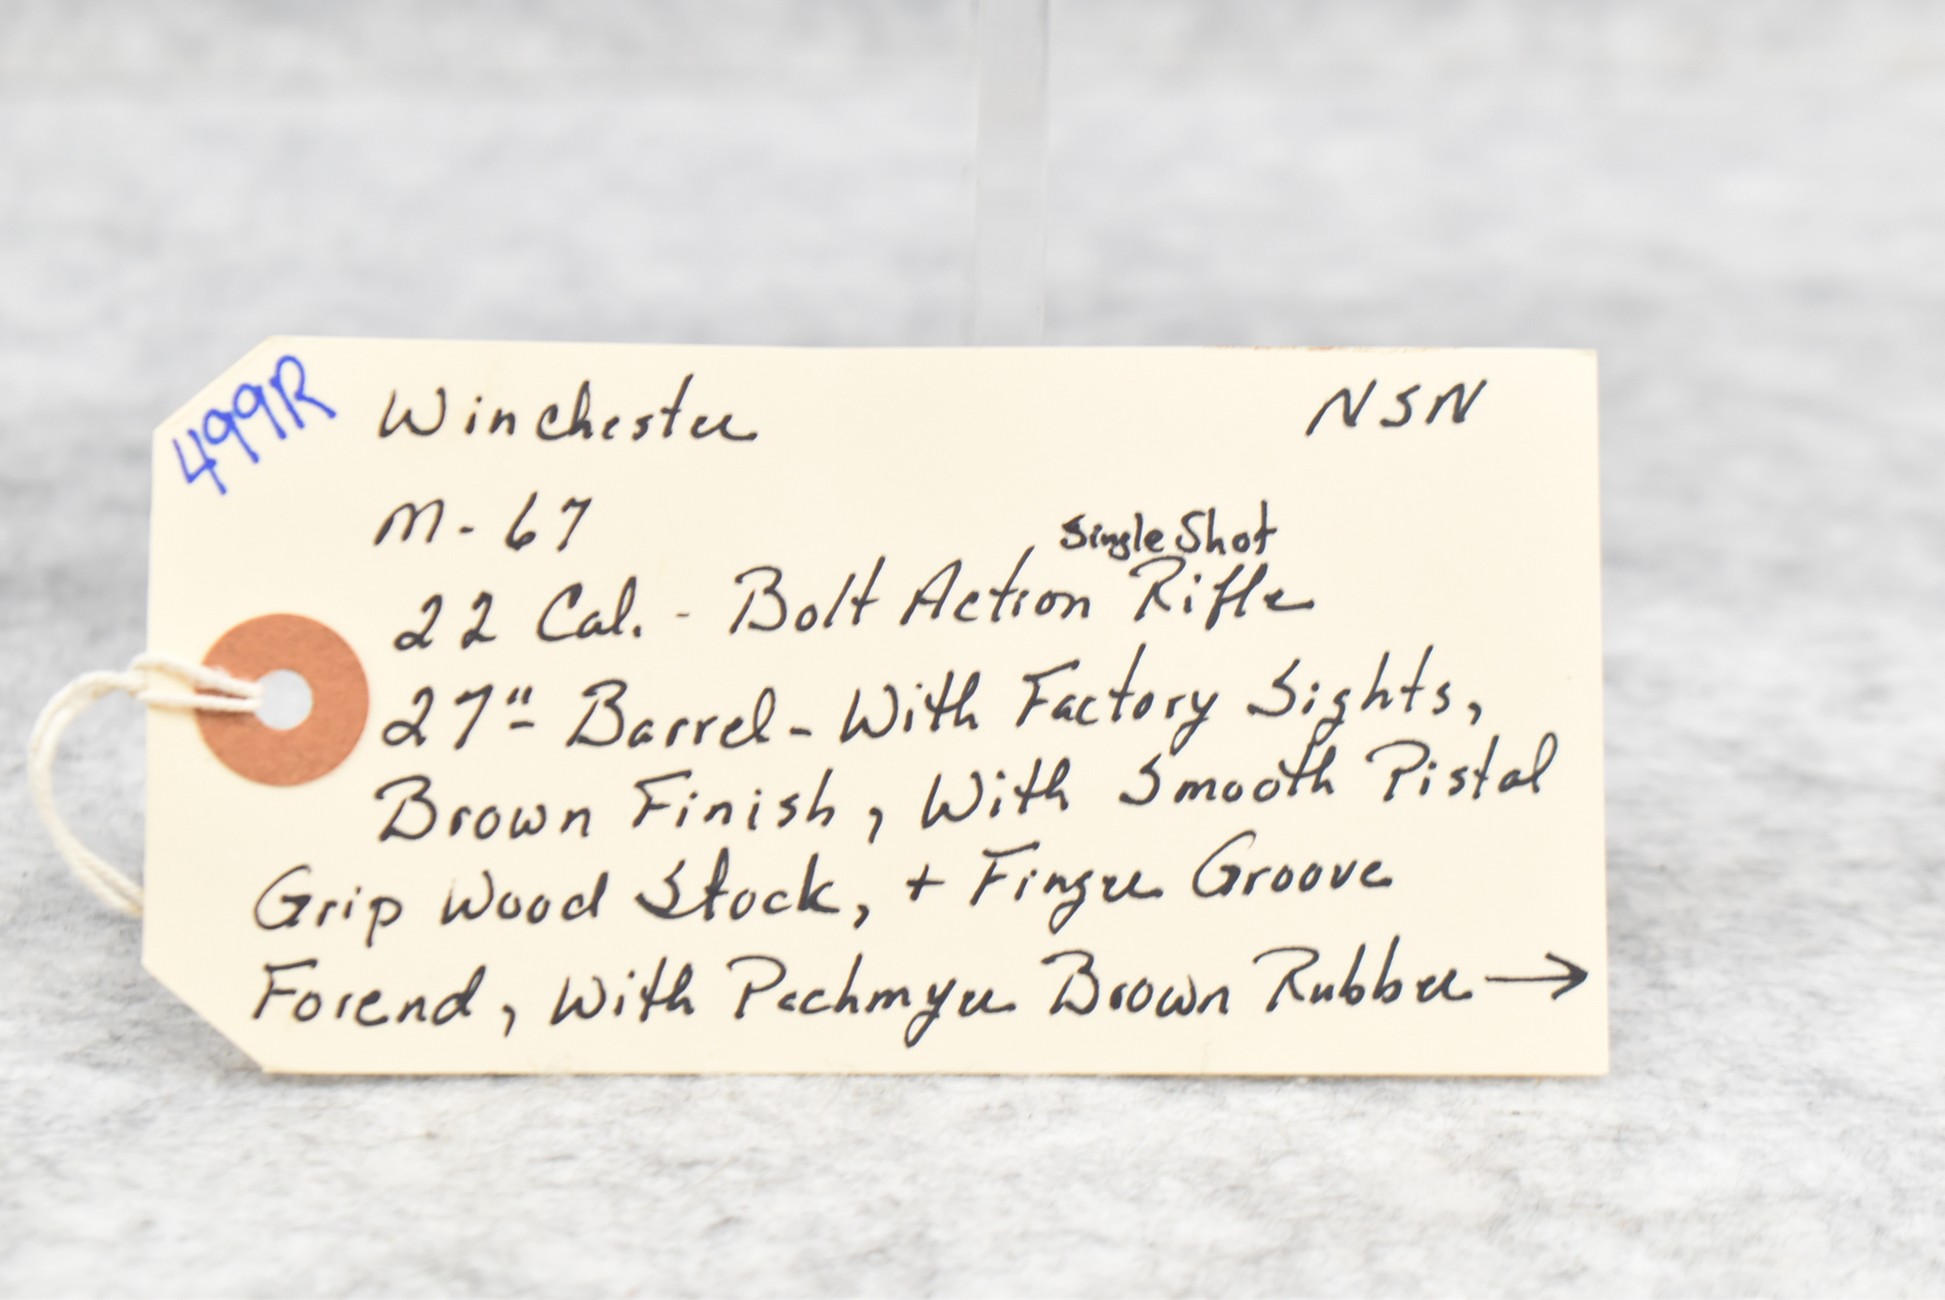 499R
Winchester NSN
M-67
Single Shot
22 Cal. - Bolt Action Rifle
27" - Barrel - With Factory Sights,
Brown Finish, With Smooth Pistol
Grip Wood Stock, + Finger Groove
Forend, With Pachmyer Brown Rubber →